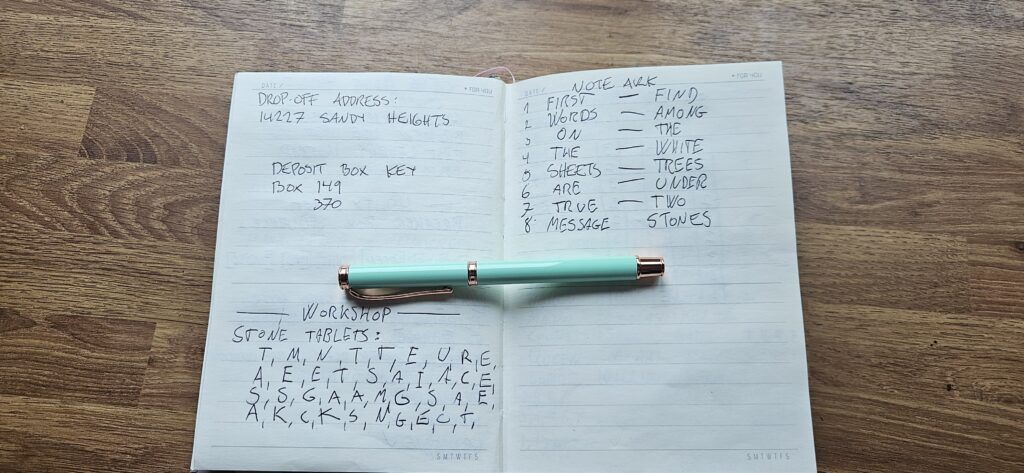 DATE /
• FOR YOU
DROP-OFF ADDRESS:
14227 SANDY HEIGHTS
DEPOSIT BOX KEY
BOX 149
370
WORKSHOP
STONE TABLETS:
T, M, N, T, T, E, U, R, E,
A, E, E, T, S, A, I, A, C, E
S, S, G, A, A, M, G, S, A, E,
A, K, C, K, S, N, G, E, C, T,
S M T W T F S
DATE /
• FOR YOU
NOTE ARK
1 FIRST — FIND
2 WORDS — AMONG
3 ON — THE
4 THE — WHITE
5 SHEETS — TREES
6 ARE — UNDER
7 TRUE — TWO
8 MESSAGE STONES
S M T W T F S